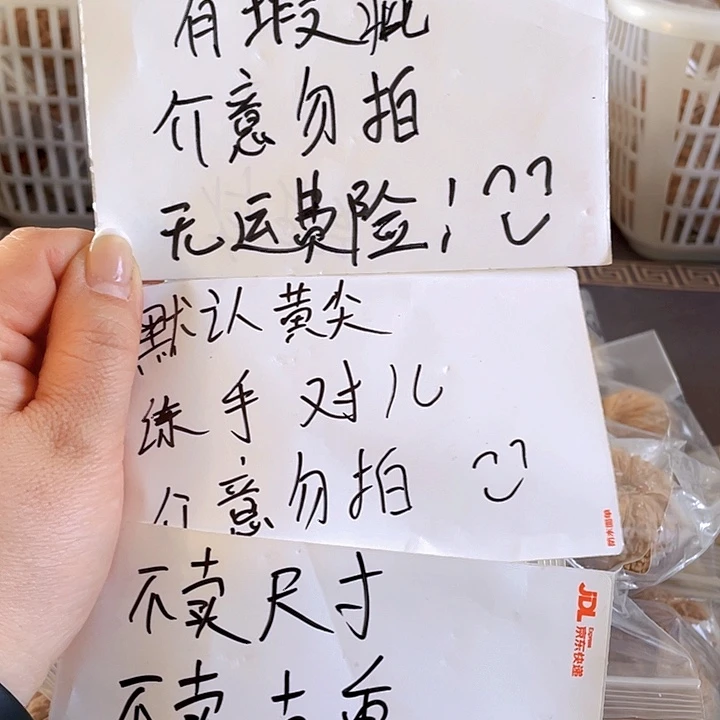 有瑕疵
介意勿拍
无运费险！
默认黄尖
练手对儿
介意勿拍
不卖尺寸
不卖
JDL
Express
京东快递